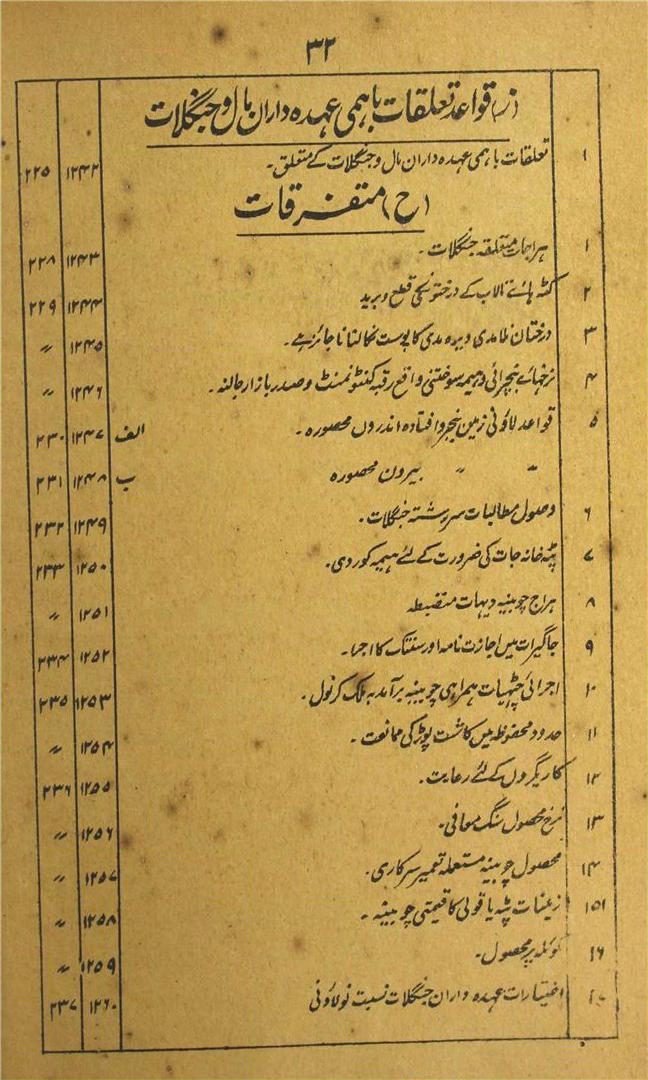 ۳۲
(ز) قواعد تعلقات باہمی عہدہ داران مال و جنگلات
۱ تعلقات باہمی عہدہ داران مال و جنگلات کے متعلق۔ ۱۲۴۲ ۲۲۵
(ح) متفرقات
۱ ہراجات متعلقہ جنگلات۔ ۱۲۴۳ ۲۲۸
۲ کٹہ ہائے تالاب کے درختونکی قطع و برید ۱۲۴۴ ۲۲۹
۳ درختان و کا پوست نکالنا ناجائز ہے۔ ۱۲۴۵ 〃
۴ نرخہائے بنچرائی و ہیمہ سوختنی واقع رقبہ کنٹونمنٹ و صدر بازار جالنہ۔ ۱۲۴۶ 〃
۵ قواعد لاؤنی زمین بنجر و افتادہ اندرون محصورہ۔ الف ۱۲۴۷ ۲۳۰
〃 〃 بیرون محصورہ ب ۱۲۴۸ ۲۳۱
۶ وصول مطالبات سررشتہ جنگلات۔ ۱۲۴۹ ۲۳۲
۷ پٹہ خانہ جات کی ضرورت کے لئے ہیمہ کوردی۔ ۱۲۵۰ ۲۳۳
۸ ہراج چوبینہ دیہات منضبطہ ۱۲۵۱ 〃
۹ جاگیرات میں اجازت نامہ اور کا اجرا۔ ۱۲۵۲ ۲۳۴
۱۰ اجرائی چٹھیات ہمراہی چوبینہ برآمد بہ ملک کرنول۔ ۱۲۵۳ ۲۳۵
۱۱ حدود محفوظہ میں کاشت پوڑ کی ممانعت۔ ۱۲۵۴ 〃
۱۲ کاریگروں کے لئے رعایت۔ ۱۲۵۵ ۲۳۶
۱۳ نرخ محصول سنگ موافی۔ ۱۲۵۶ 〃
۱۴ محصول چوبینہ مستعملہ تعمیر سرکاری۔ ۱۲۵۷ 〃
۱۵ زمینات پٹہ یا قولی کا قیمتی چوبینہ۔ ۱۲۵۸ 〃
۱۶ کوئلہ پر محصول۔ ۱۲۵۹ 〃
۱۷ اختیارات عہدہ داران جنگلات نسبت نولاؤنی ۱۲۶۰ ۲۳۷